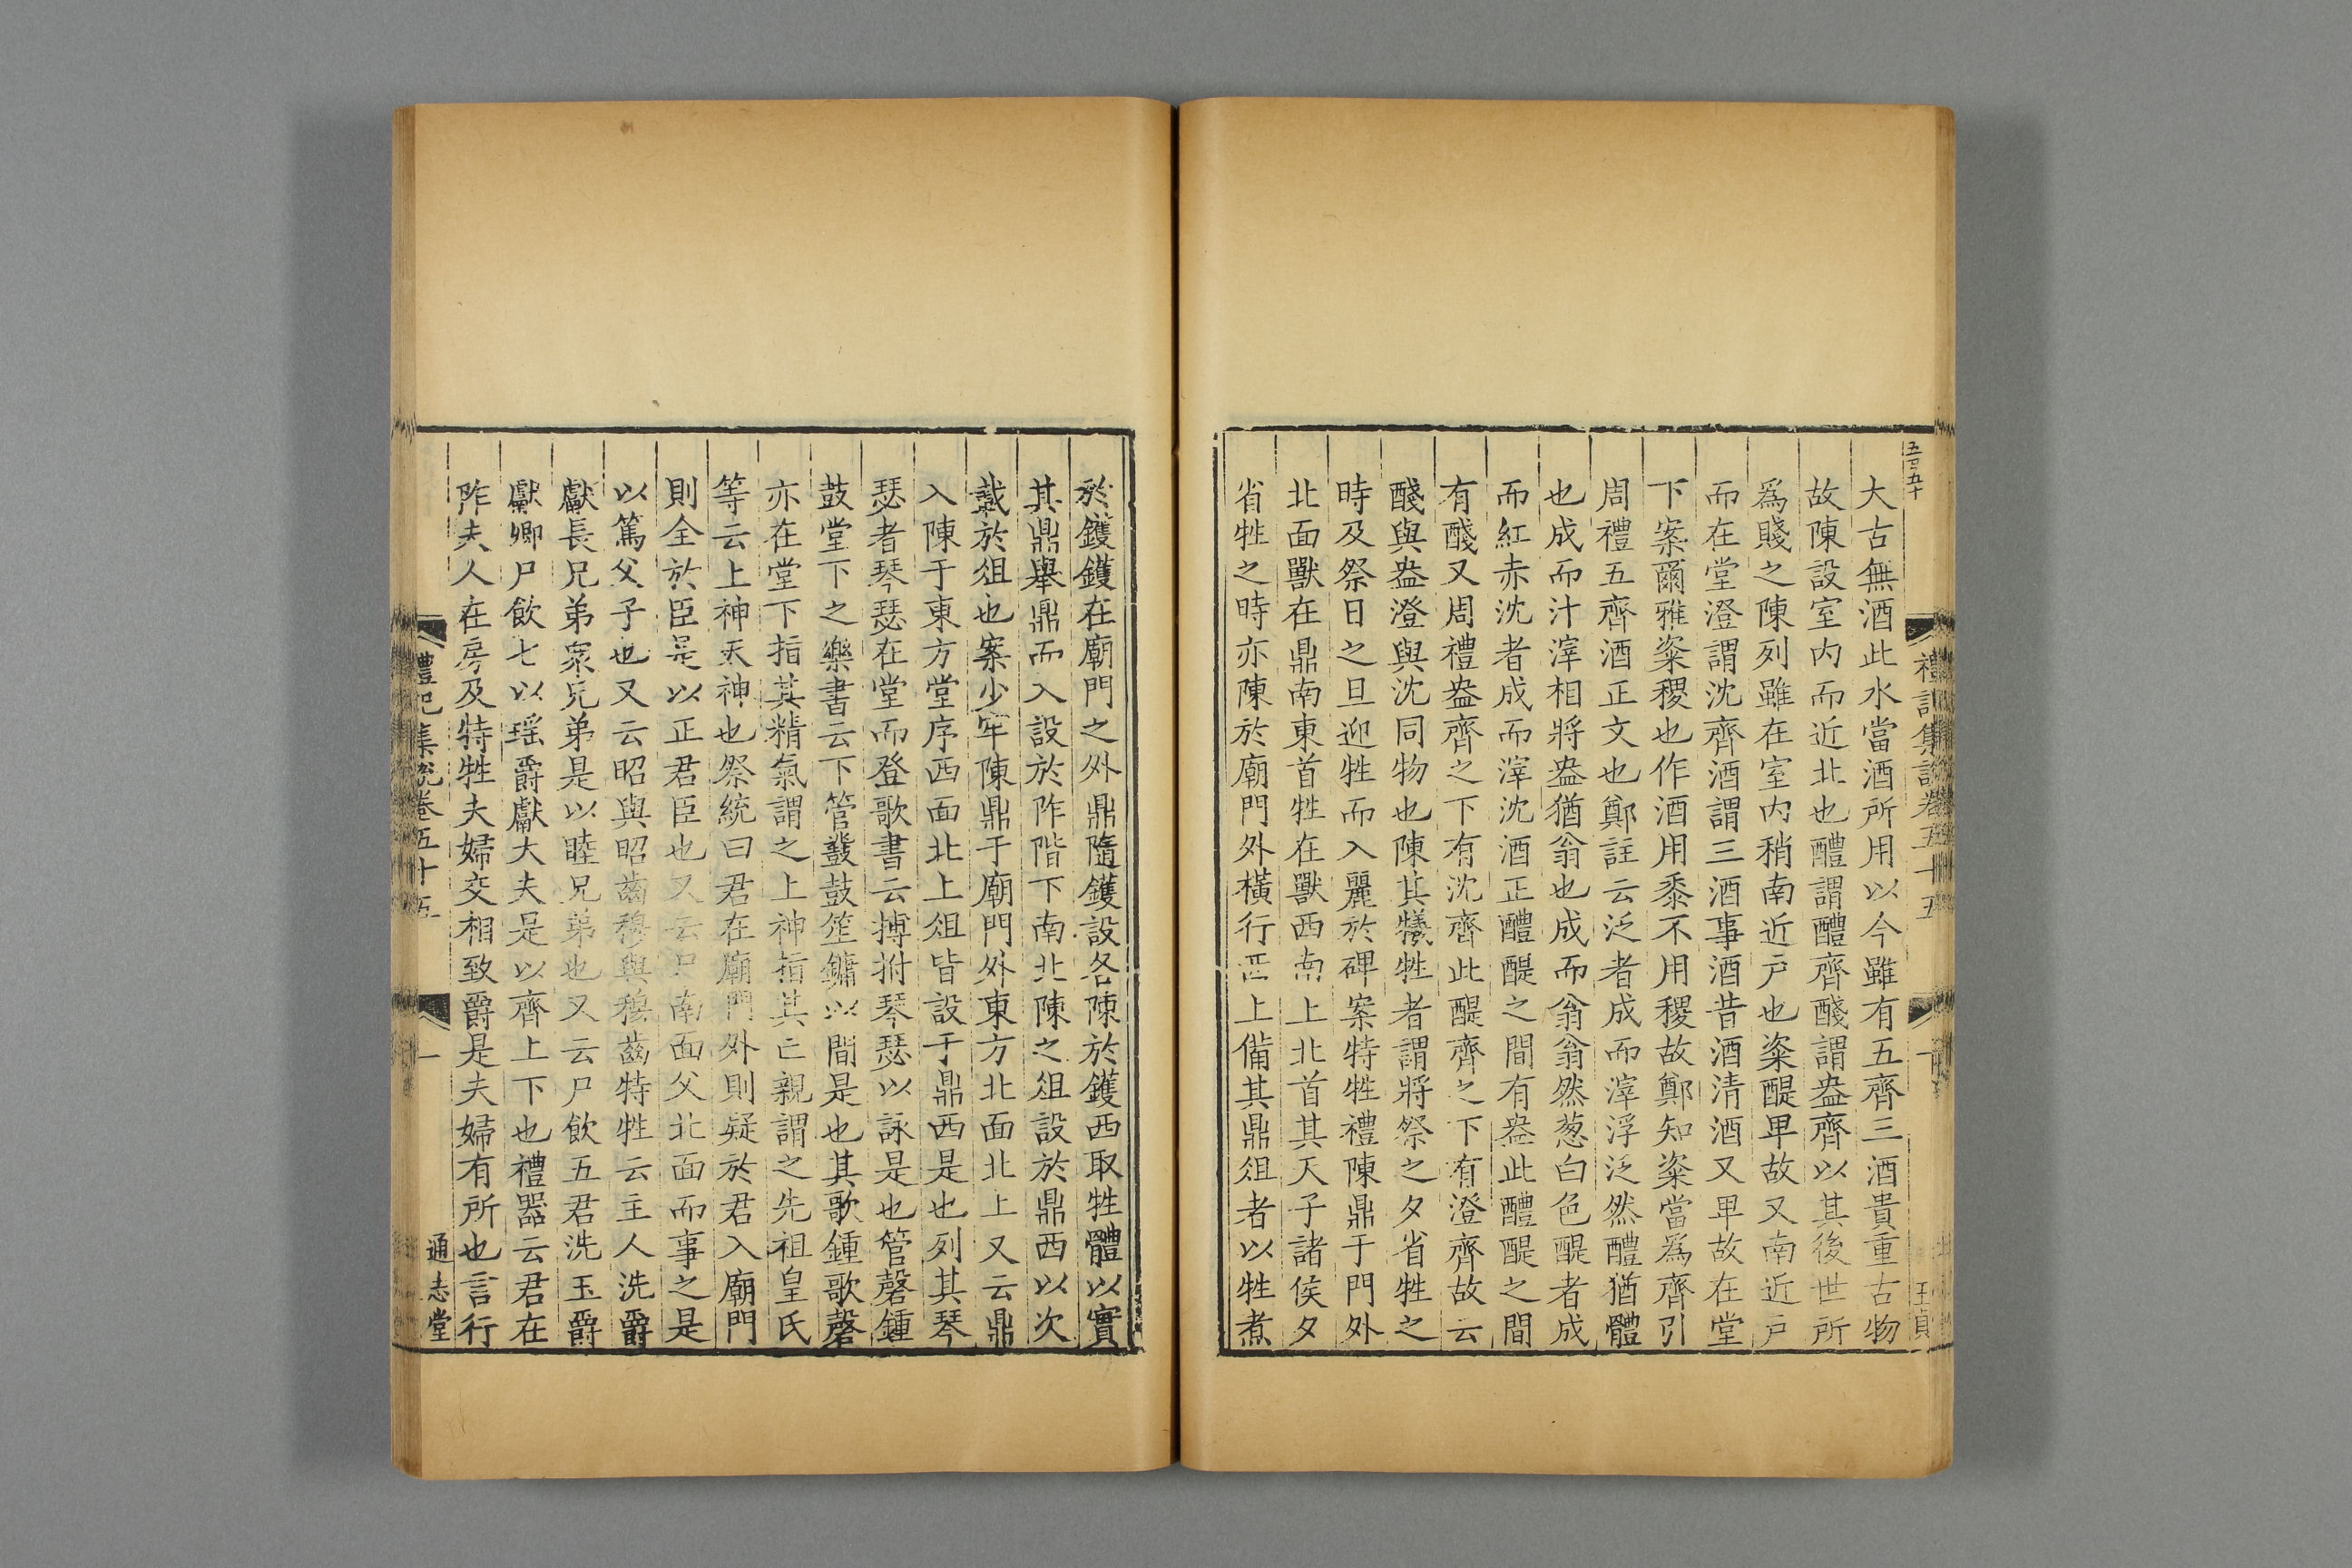 五百五十
禮記集說卷五十五
十
王貞
大古無酒此水當酒所用以今雖有五齊三酒貴重古物
故陳設室內而近北也醴謂醴齊醆謂盎齊以其後世所
爲賤之陳列雖在室內稍南近戶也粢醍卑故又南近戶
而在堂澄謂沈齊酒謂三酒事酒昔酒清酒又卑故在堂
下案爾雅粢稷也作酒用黍不用稷故鄭知粢當爲齊引
周禮五齊酒正文也鄭註云泛者成而滓浮泛然醴猶體
也成而汁滓相將盎猶翁也成而翁翁然葱白色醍者成
而紅赤沈者成而滓沈酒正醴醍之間有盎此醴醍之間
有醆又周禮盎齊之下有沈齊此醍齊之下有澄齊故云
醆與盎澄與沈同物也陳其犧牲者謂將祭之夕省牲之
時及祭日之旦迎牲而入麗於碑案特牲禮陳鼎于門外
北面獸在鼎南東首牲在獸西南上北首其天子諸侯夕
省牲之時亦陳於廟門外橫行西上備其鼎俎者以牲煮
於鑊鑊在廟門之外鼎隨鑊設各陳於鑊西取牲體以實
其鼎舉鼎而入設於阼階下南北陳之俎設於鼎西以次
載於俎也案少牢陳鼎于廟門外東方北面北上又云鼎
入陳于東方堂序西面北上俎皆設于鼎西是也列其琴
瑟者琴瑟在堂而登歌書云搏拊琴瑟以詠是也管磬鍾
鼓堂下之樂書云下管鼗鼓笙鏞以間是也其歌鍾歌磬
亦在堂下指其精氣謂之上神指其亡親謂之先祖皇氏
等云上神天神也祭統曰君在廟門外則疑於君入廟門
則全於臣是以正君臣也又云尸南面父北面而事之是
以篤父子也又云昭與昭齒穆與穆齒特牲云主人洗爵
獻長兄弟衆兄弟是以睦兄弟也又云尸飲五君洗玉爵
獻卿尸飲七以瑶爵獻大夫是以齊上下也禮器云君在
阼夫人在房及特牲夫婦交相致爵是夫婦有所也言行
禮記集說卷五十五
通志堂